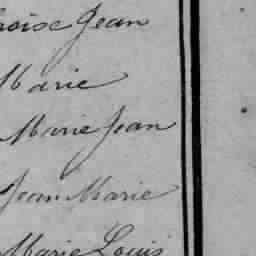 roise Jean
Marie
Marie Jean
Jean Marie
Marie Louis